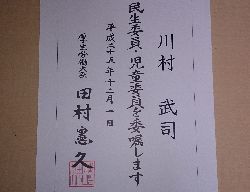 川村 武司
民生委員・児童委員を委嘱します
平成二十五年十二月一日
厚生労働大臣 田村憲久